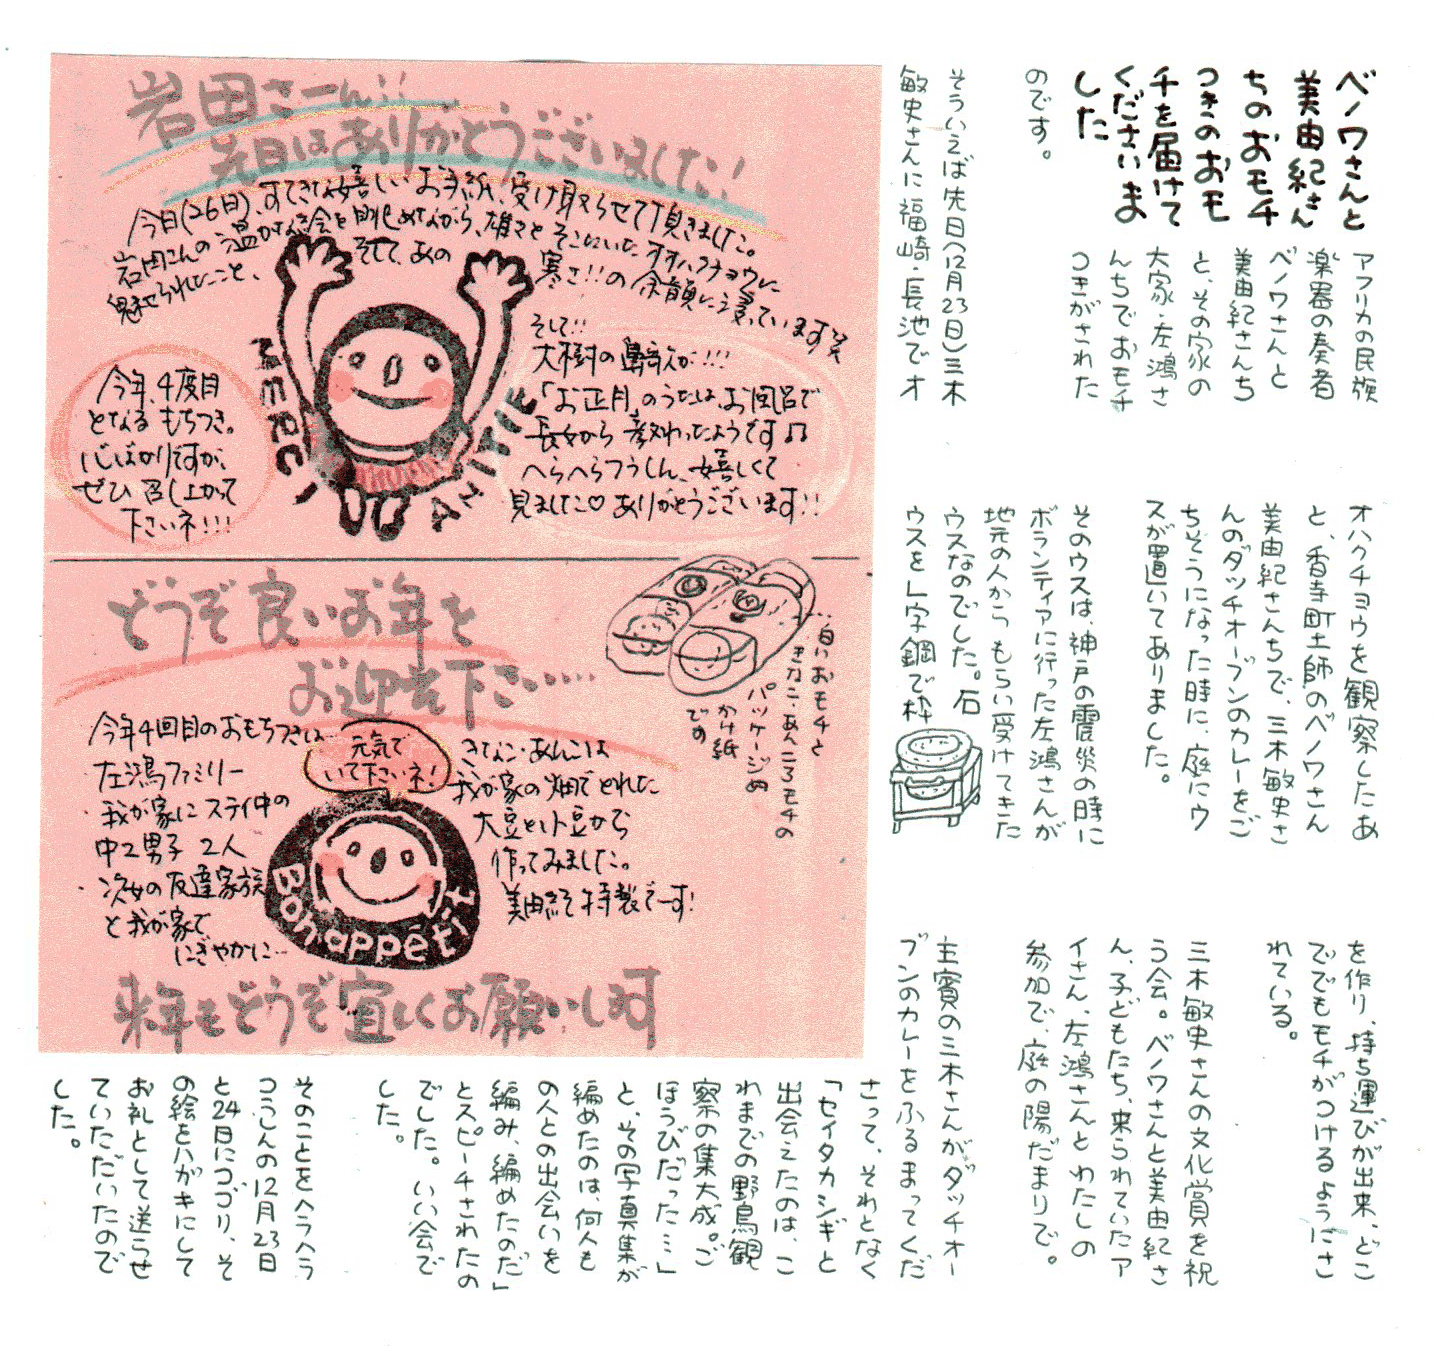 ベノワさんと
美由紀さん
ちのおモチ
つきのおモ
チを届けて
くださいま
した
アフリカの民族
楽器の奏者
ベノワさんと
美由紀さんち
と、その家の
大家・左鴻さ
んちでおモチ
つきがされた
のです。
そういえば先日(12月23日)三木
敏史さんに福崎・長池でオ
オハクチョウを観察したあ
と、香寺町土師のベノワさん
美由紀さんちで、三木敏史さ
んのダッチオーブンのカレーをご
ちそうになった時に、庭にウ
スが置いてありました。
そのウスは、神戸の震災の時に
ボランティアに行った左鴻さんが
地元の人からもらい受けてきた
ウスなのでした。石
ウスをL字鋼で枠
を作り、持ち運びが出来、どこ
ででもモチがつけるようにさ
れている。
三木敏史さんの文化賞を祝
う会。ベノワさんと美由紀さ
ん、子どもたち、来られていたア
イさん、左鴻さんとわたしの
参加で、庭の陽だまりで。
主賓の三木さんがダッチオー
ブンのカレーをふるまってくだ
さって、それとなく
「セイタカシギと
出会えたのは、こ
れまでの野鳥観
察の集大成。ご
ほうびだった…」
と、その写真集が
編めたのは、何人も
の人との出会いを
編み、編めたのだ」
とスピーチされたの
でした。いい会で
した。
そのことをヘラヘラ
つうしんの12月23日
と24日につづり、そ
の絵をハガキにして
お礼として送らせ
ていただいたので
した。
岩田さーん!!
先日はありがとうございました!
今日(26日)、すてきな嬉しいお手紙、受け取らせて頂きました。
岩田さんの温かな絵を眺めながら、雄々とそこにいたオオハクチョウに
魅せられたこと、そして、あの寒さ!!の余韻に浸っています笑
MERCI
PETITE
そして!!
大樹の鼻歌が!!!
「お正月」のうたは、お風呂で
長女から教わったようです♫
へらへらつうしん、嬉しくて
見ました♡ありがとうございます!!
今年、4度目
となるもちつき。
心ばかりですが、
ぜひ召し上がって
下さいネ!!!
どうぞ良いお年を
お迎え下さい……
…白いおモチと
きなこ・あんころモチの
パッケージの
かけ紙
です
今年4回目のおもちつきは…
左鴻ファミリー
・我が家にステイ中の
中2男子 2人
・次女の友達家族
と我が家で
にぎやかに…
元気で
いて下さいネ!
Bon appétit
きなこ・あんこは
我が家の畑でとれた
大豆と小豆から
作ってみました。
美由紀特製でーす!
来年もどうぞ宜しくお願いします